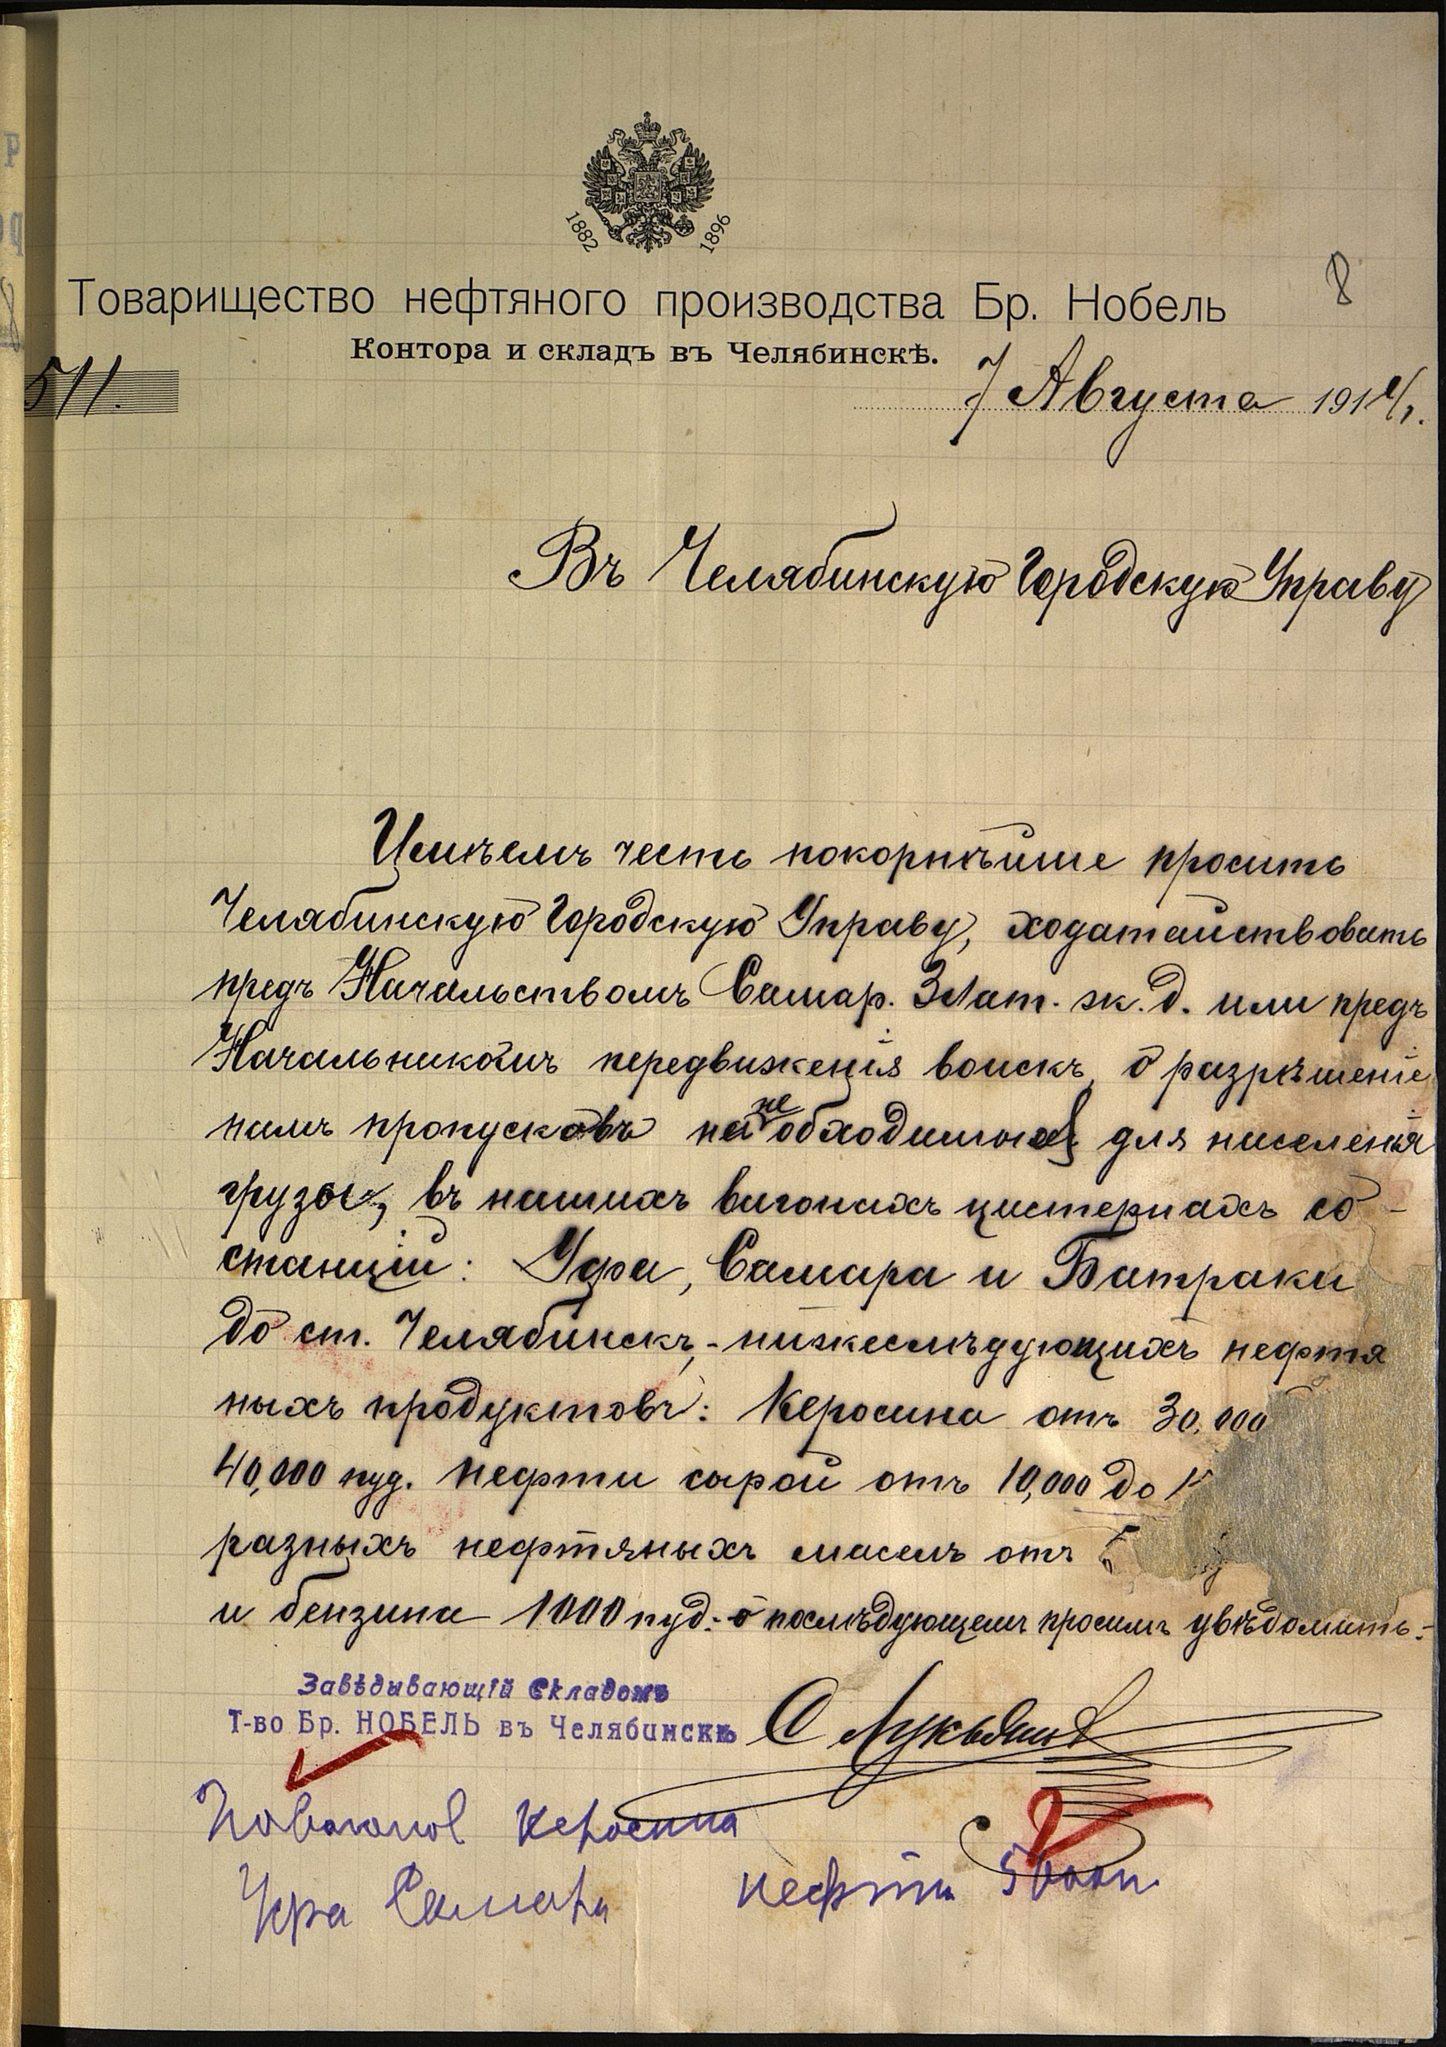 1882 1896
8
Товарищество нефтяного производства Бр. Нобель
Контора и складъ въ Челябинскѣ.
511.
7 Августа 1914 г.
Въ Челябинскую Городскую Управу
Имѣемъ честь покорнѣише просить
Челябинскую Городскую Управу, ходатаиствовать
предъ Начальствомъ Самар. Злат. ж. д. или предъ
Начальникомъ передвиженія воискъ, о разрѣшеніе
намъ пропусковъ необходимыхъ для населенія
грузы, въ нашихъ вагонахъ цистернахъ со
станціи: Уфа, Самара и Батраки
до ст. Челябинскъ, - нижеслѣдующихъ нефтя
ныхъ продуктовъ: Керосина отъ 30,000
40,000 пуд. нефти сырой отъ 10,000 до
разныхъ нефтяныхъ маселъ отъ
и бензина 1000 пуд. - о послѣдующемъ просимъ увѣдомить. -
Завѣдывающій Складомъ
Т-во Бр. НОБЕЛЬ въ Челябинскѣ
С Лукьянов
керосина
Уфа Самара
нефти